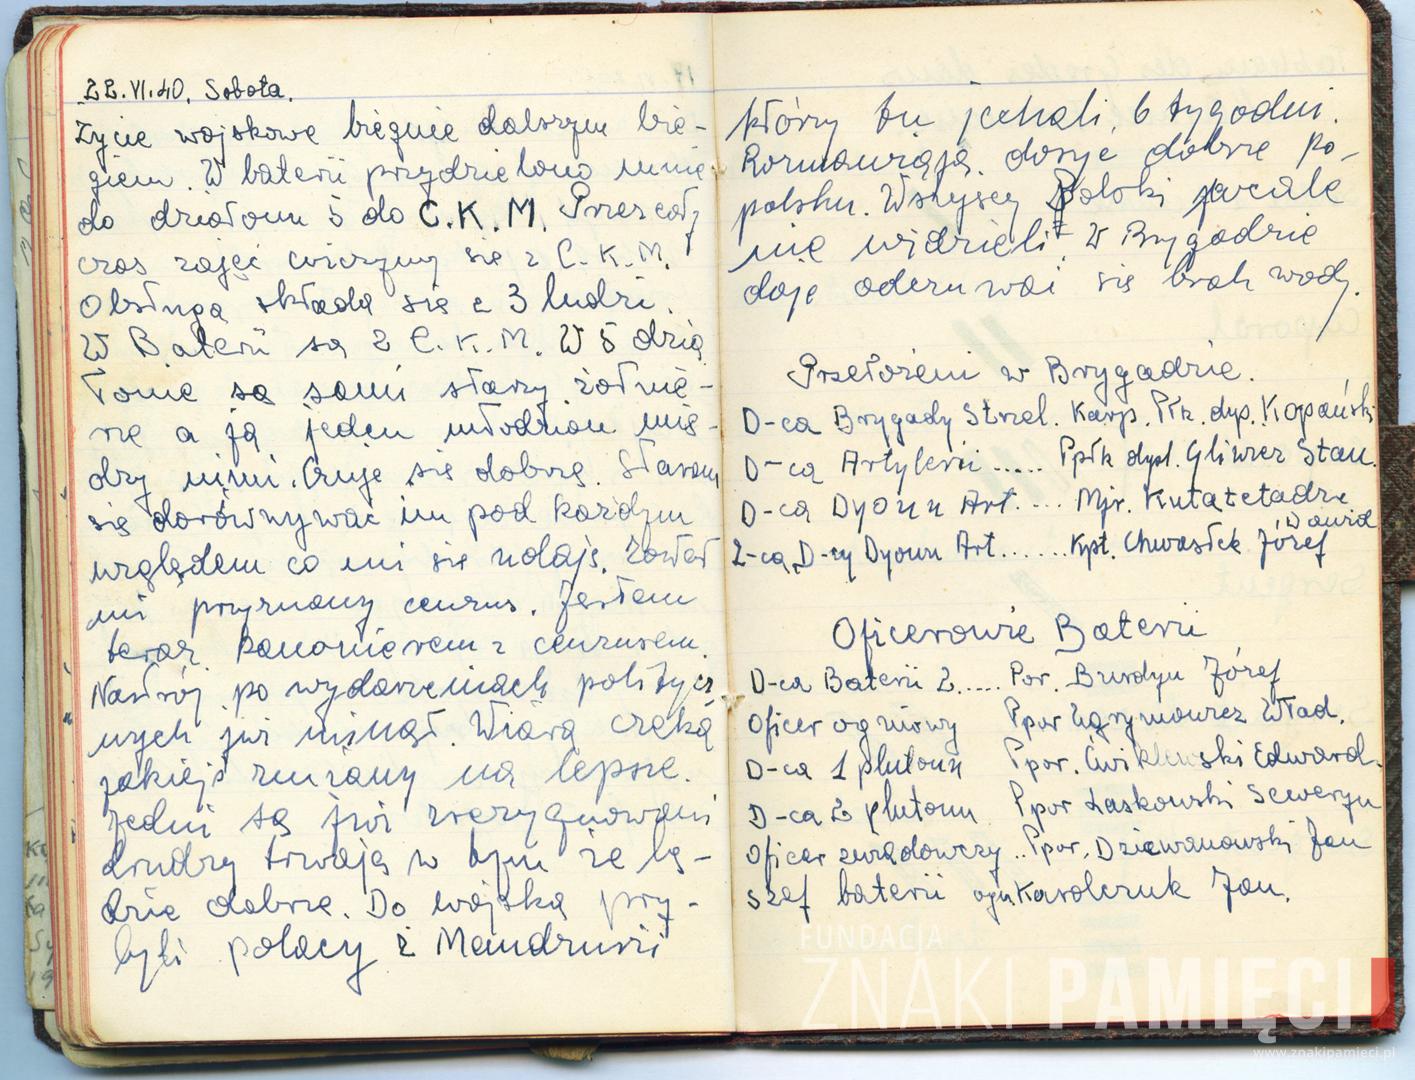 22.VI.40. Sobota.
Życie wojskowe biegnie dalszym bie-
giem. W baterii przydzielono mnie
do działonu 5 do C.K.M. Przez cały
czas zajęć ćwiczymy się z C.K.M.
Obsługa składa się z 3 ludzi.
W Baterii są 2 C.K.M. W 5 dzia
łonie są sami starzy żołnie-
rze a ja jeden młodzian mię-
dzy nimi. Czuje się dobrze. Staram
się dorównywać im pod każdym
względem co mi się udaje. Został
mi przyznany cenzus. Jestem
teraz kanonierem z cenzusem.
Nastrój po wydarzeniach politycz
nych już minął. Wiara czeka
jakiejś zmiany na lepsze.
Jedni są już zrezygnowani
drudzy trwają w tym że bę-
dzie dobrze. Do wojska przy-
byli polacy z Mandżurii
którzy tu jechali 6 tygodni.
Rozmawiają dosyć dobrze po-
polsku. Wszyscy Polski wcale
nie widzieli. W Brygadzie
daje odczuwać się brak wody.
Przełożeni w Brygadzie.
D-ca Brygady Strzel. Karp. Płk. dypl. Kopański
D-ca Artylerii ..... Ppłk dypl. Gliwicz Stan.
D-ca Dyonu Art. .... Mjr. Kutateladze
Dawid
Z-ca D-cy Dyonu Art. ...... Kpt. Chwastek Józef
Oficerowie Baterii
D-ca Baterii 2..... Por. Burdyn Józef
Oficer ogniowy Ppor Wład.
D-ca 1 plutonu Ppor. Ćwiklewski Edward.
D-ca 2 plutonu Ppor Łaskowski Seweryn
Oficer zwiadowczy .. Ppor. Dziewanowski Jan
szef baterii ogn Karolczuk Jan.
FUNDACJA
ZNAKI PAMIĘCI
www.znakipamieci.pl